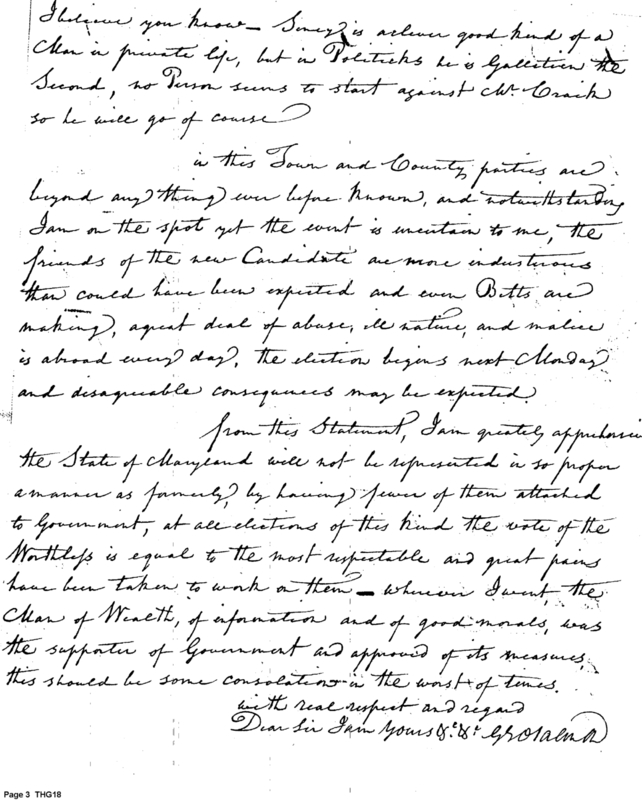 I believe you know – Seney is a clever good kind of a
Man in private life, but in Politicks he is Gallitien the
Second, no Person seems to start against Mr. Craik
so he will go of course
in this Town and County parties are
beyond any thing ever before known, and notwithstanding
I am on the spot yet the event is uncertain to me, the
friends of the new Candidate are more industerous
than could have been expected and even Betts are
making, a great deal of abuse, ill nature, and malice
is abroad every day, the election begins next Monday
and disagreeable consequences may be expected.
from this Statement, I am greately apprehensive
the State of Maryland will not be represented in so proper
a manner as formerly, by having fewer of them attached
to Government, at all elections of this kind the vote of the
Worthless is equal to the most respectable and great pains
have been taken to work on them – wherever I went, the
Man of Wealth, of information and of good morals, was
the supporter of Government and approved of its measures,
this should be some consolation in the worst of times.
with real respect and regard
Dear Sir I am yours &c. &c.
Page 3 THG18